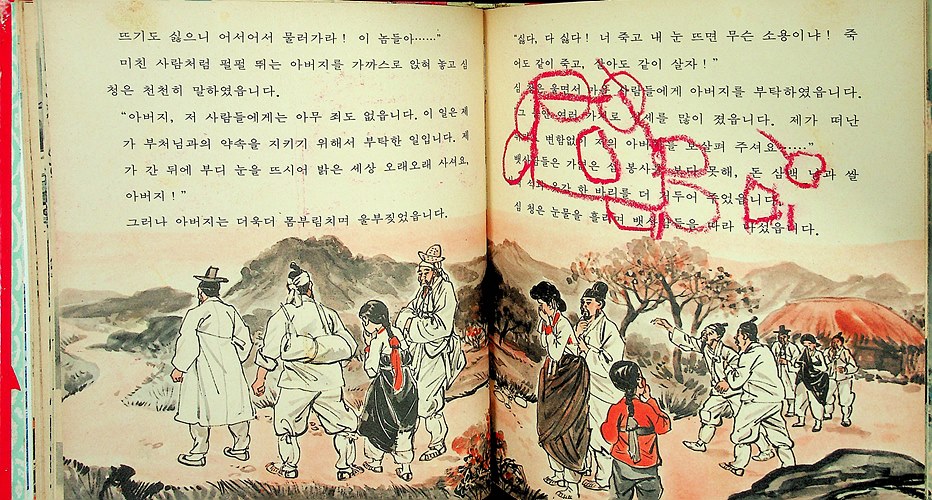 뜨기도 싫으니 어서어서 물러가라! 이 놈들아……"
미친 사람처럼 펄펄 뛰는 아버지를 가까스로 앉혀 놓고 심
청은 천천히 말하였읍니다.
"아버지, 저 사람들에게는 아무 죄도 없읍니다. 이 일은 제
가 부처님과의 약속을 지키기 위해서 부탁한 일입니다. 제
가 간 뒤에 부디 눈을 뜨시어 밝은 세상 오래오래 사셔요,
아버지!"
그러나 아버지는 더욱더 몸부림치며 울부짖었읍니다.
"싫다, 다 싫다! 너 죽고 내 눈 뜨면 무슨 소용이냐! 죽
어도 같이 죽고, 살아도 같이 살자!"
심청은 울면서 마을 사람들에게 아버지를 부탁하였읍니다.
그 동안 여러 가지로 신세를 많이 졌읍니다. 제가 떠난
변함없이 저의 아버지를 보살펴 주셔요……"
뱃사람들은 가엾은 심 봉사를 보다 못해, 돈 삼백 냥과 쌀
한 바리를 더 주었읍니다.
심청은 눈물을 흘리며 뱃사람들을 따라 나섰읍니다.